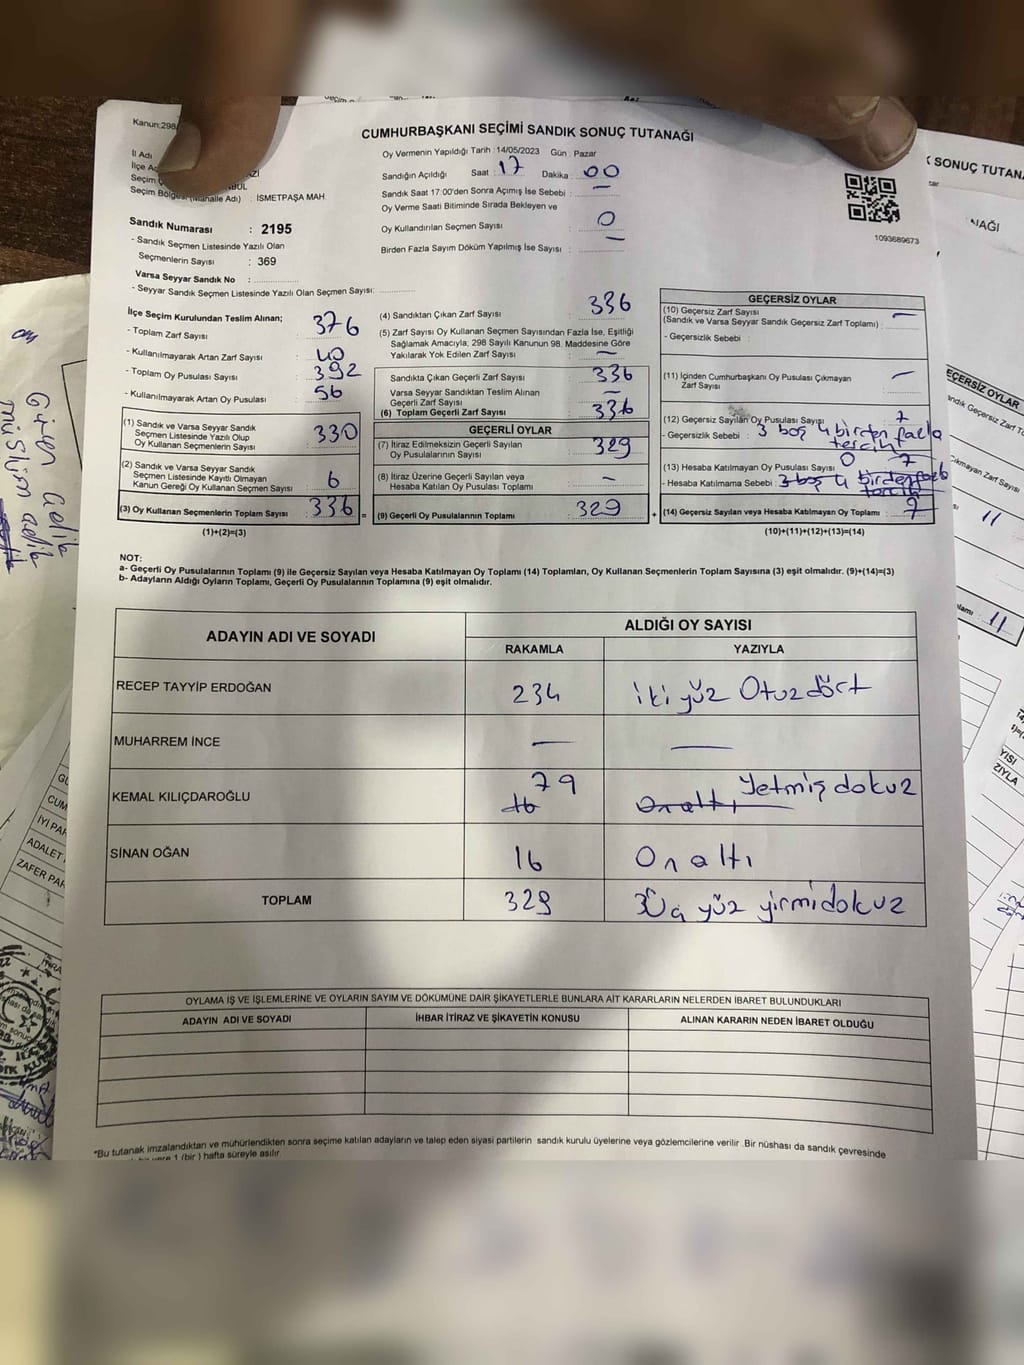 CUMHURBAŞKANI SEÇİMİ SANDIK SONUÇ TUTANAĞI
Kanun:298
Oy Vermenin Yapıldığı Tarih : 14/05/2023 Gün : Pazar
İl Adı
Sandığın Açıldığı Saat : 17 Dakika : 00
Seçim
Seçim Bölgesi (Mahalle Adı) : İSMETPAŞA MAH.
Sandık Saat 17:00'den Sonra Açımış İse Sebebi : —
Oy Verme Saati Bitiminde Sırada Bekleyen ve
Oy Kullandırılan Seçmen Sayısı : 0
Birden Fazla Sayım Döküm Yapılmış İse Sayısı : —
1093689673
Sandık Numarası : 2195
- Sandık Seçmen Listesinde Yazılı Olan
Seçmenlerin Sayısı : 369
Varsa Seyyar Sandık No :
- Seyyar Sandık Seçmen Listesinde Yazılı Olan Seçmen Sayısı:
İlçe Seçim Kurulundan Teslim Alınan;
- Toplam Zarf Sayısı : 376
- Kullanılmayarak Artan Zarf Sayısı : 40
- Toplam Oy Pusulası Sayısı : 392
- Kullanılmayarak Artan Oy Pusulası : 56
(1) Sandık ve Varsa Seyyar Sandık
Seçmen Listesinde Yazılı Olup
Oy Kullanan Seçmenlerin Sayısı : 330
(2) Sandık ve Varsa Seyyar Sandık
Seçmen Listesinde Kayıtlı Olmayan
Kanun Gereği Oy Kullanan Seçmen Sayısı : 6
(3) Oy Kullanan Seçmenlerin Toplam Sayısı : 336 =
(1)+(2)=(3)
(4) Sandıktan Çıkan Zarf Sayısı : 336
(5) Zarf Sayısı Oy Kullanan Seçmen Sayısından Fazla İse, Eşitliği
Sağlamak Amacıyla; 298 Sayılı Kanunun 98. Maddesine Göre
Yakılarak Yok Edilen Zarf Sayısı : —
Sandıkta Çıkan Geçerli Zarf Sayısı : 336
Varsa Seyyar Sandıktan Teslim Alınan
Geçerli Zarf Sayısı : —
(6) Toplam Geçerli Zarf Sayısı : 336
GEÇERLİ OYLAR
(7) İtiraz Edilmeksizin Geçerli Sayılan
Oy Pusulalarının Sayısı : 329
(8) İtiraz Üzerine Geçerli Sayılan veya
Hesaba Katılan Oy Pusulası Toplamı : —
(9) Geçerli Oy Pusulalarının Toplamı : 329 +
GEÇERSİZ OYLAR
(10) Geçersiz Zarf Sayısı
(Sandık ve Varsa Seyyar Sandık Geçersiz Zarf Toplamı) : —
- Geçersizlik Sebebi :
(11) İçinden Cumhurbaşkanı Oy Pusulası Çıkmayan
Zarf Sayısı : —
(12) Geçersiz Sayılan Oy Pusulası Sayısı : 7
- Geçersizlik Sebebi : 3 boş 4 birden fazla
tercih
(13) Hesaba Katılmayan Oy Pusulası Sayısı : 0 7
- Hesaba Katılmama Sebebi : 3 boş 4 birden fazla
tercih
(14) Geçersiz Sayılan veya Hesaba Katılmayan Oy Toplamı : 7
(10)+(11)+(12)+(13)=(14)
NOT:
a- Geçerli Oy Pusulalarının Toplamı (9) ile Geçersiz Sayılan veya Hesaba Katılmayan Oy Toplamı (14) Toplamları, Oy Kullanan Seçmenlerin Toplam Sayısına (3) eşit olmalıdır. (9)+(14)=(3)
b- Adayların Aldığı Oyların Toplamı, Geçerli Oy Pusulalarının Toplamına (9) eşit olmalıdır.
ADAYIN ADI VE SOYADI
ALDIĞI OY SAYISI
RAKAMLA YAZIYLA
RECEP TAYYİP ERDOĞAN 234 iki yüz Otuz dört
MUHARREM İNCE — —
KEMAL KILIÇDAROĞLU 16 79 On altı Yetmiş dokuz
SİNAN OĞAN 16 On altı
TOPLAM 329 3Üç yüz yirmi dokuz
OYLAMA İŞ VE İŞLEMLERİNE VE OYLARIN SAYIM VE DÖKÜMÜNE DAİR ŞİKAYETLERLE BUNLARA AİT KARARLARIN NELERDEN İBARET BULUNDUKLARI
ADAYIN ADI VE SOYADI İHBAR İTİRAZ VE ŞİKAYETİN KONUSU ALINAN KARARIN NEDEN İBARET OLDUĞU
*Bu tutanak imzalandıktan ve mühürlendikten sonra seçime katılan adayların ve talep eden siyasi partilerin sandık kurulu üyelerine veya gözlemcilerine verilir. Bir nüshası da sandık çevresinde
1 (bir) hafta süreyle asılır.
SONUÇ TUTAN
NAĞI
EÇERSİZ OYLAR
11
11
CUM
İYİ PAR
ADALET
ZAFER PAR